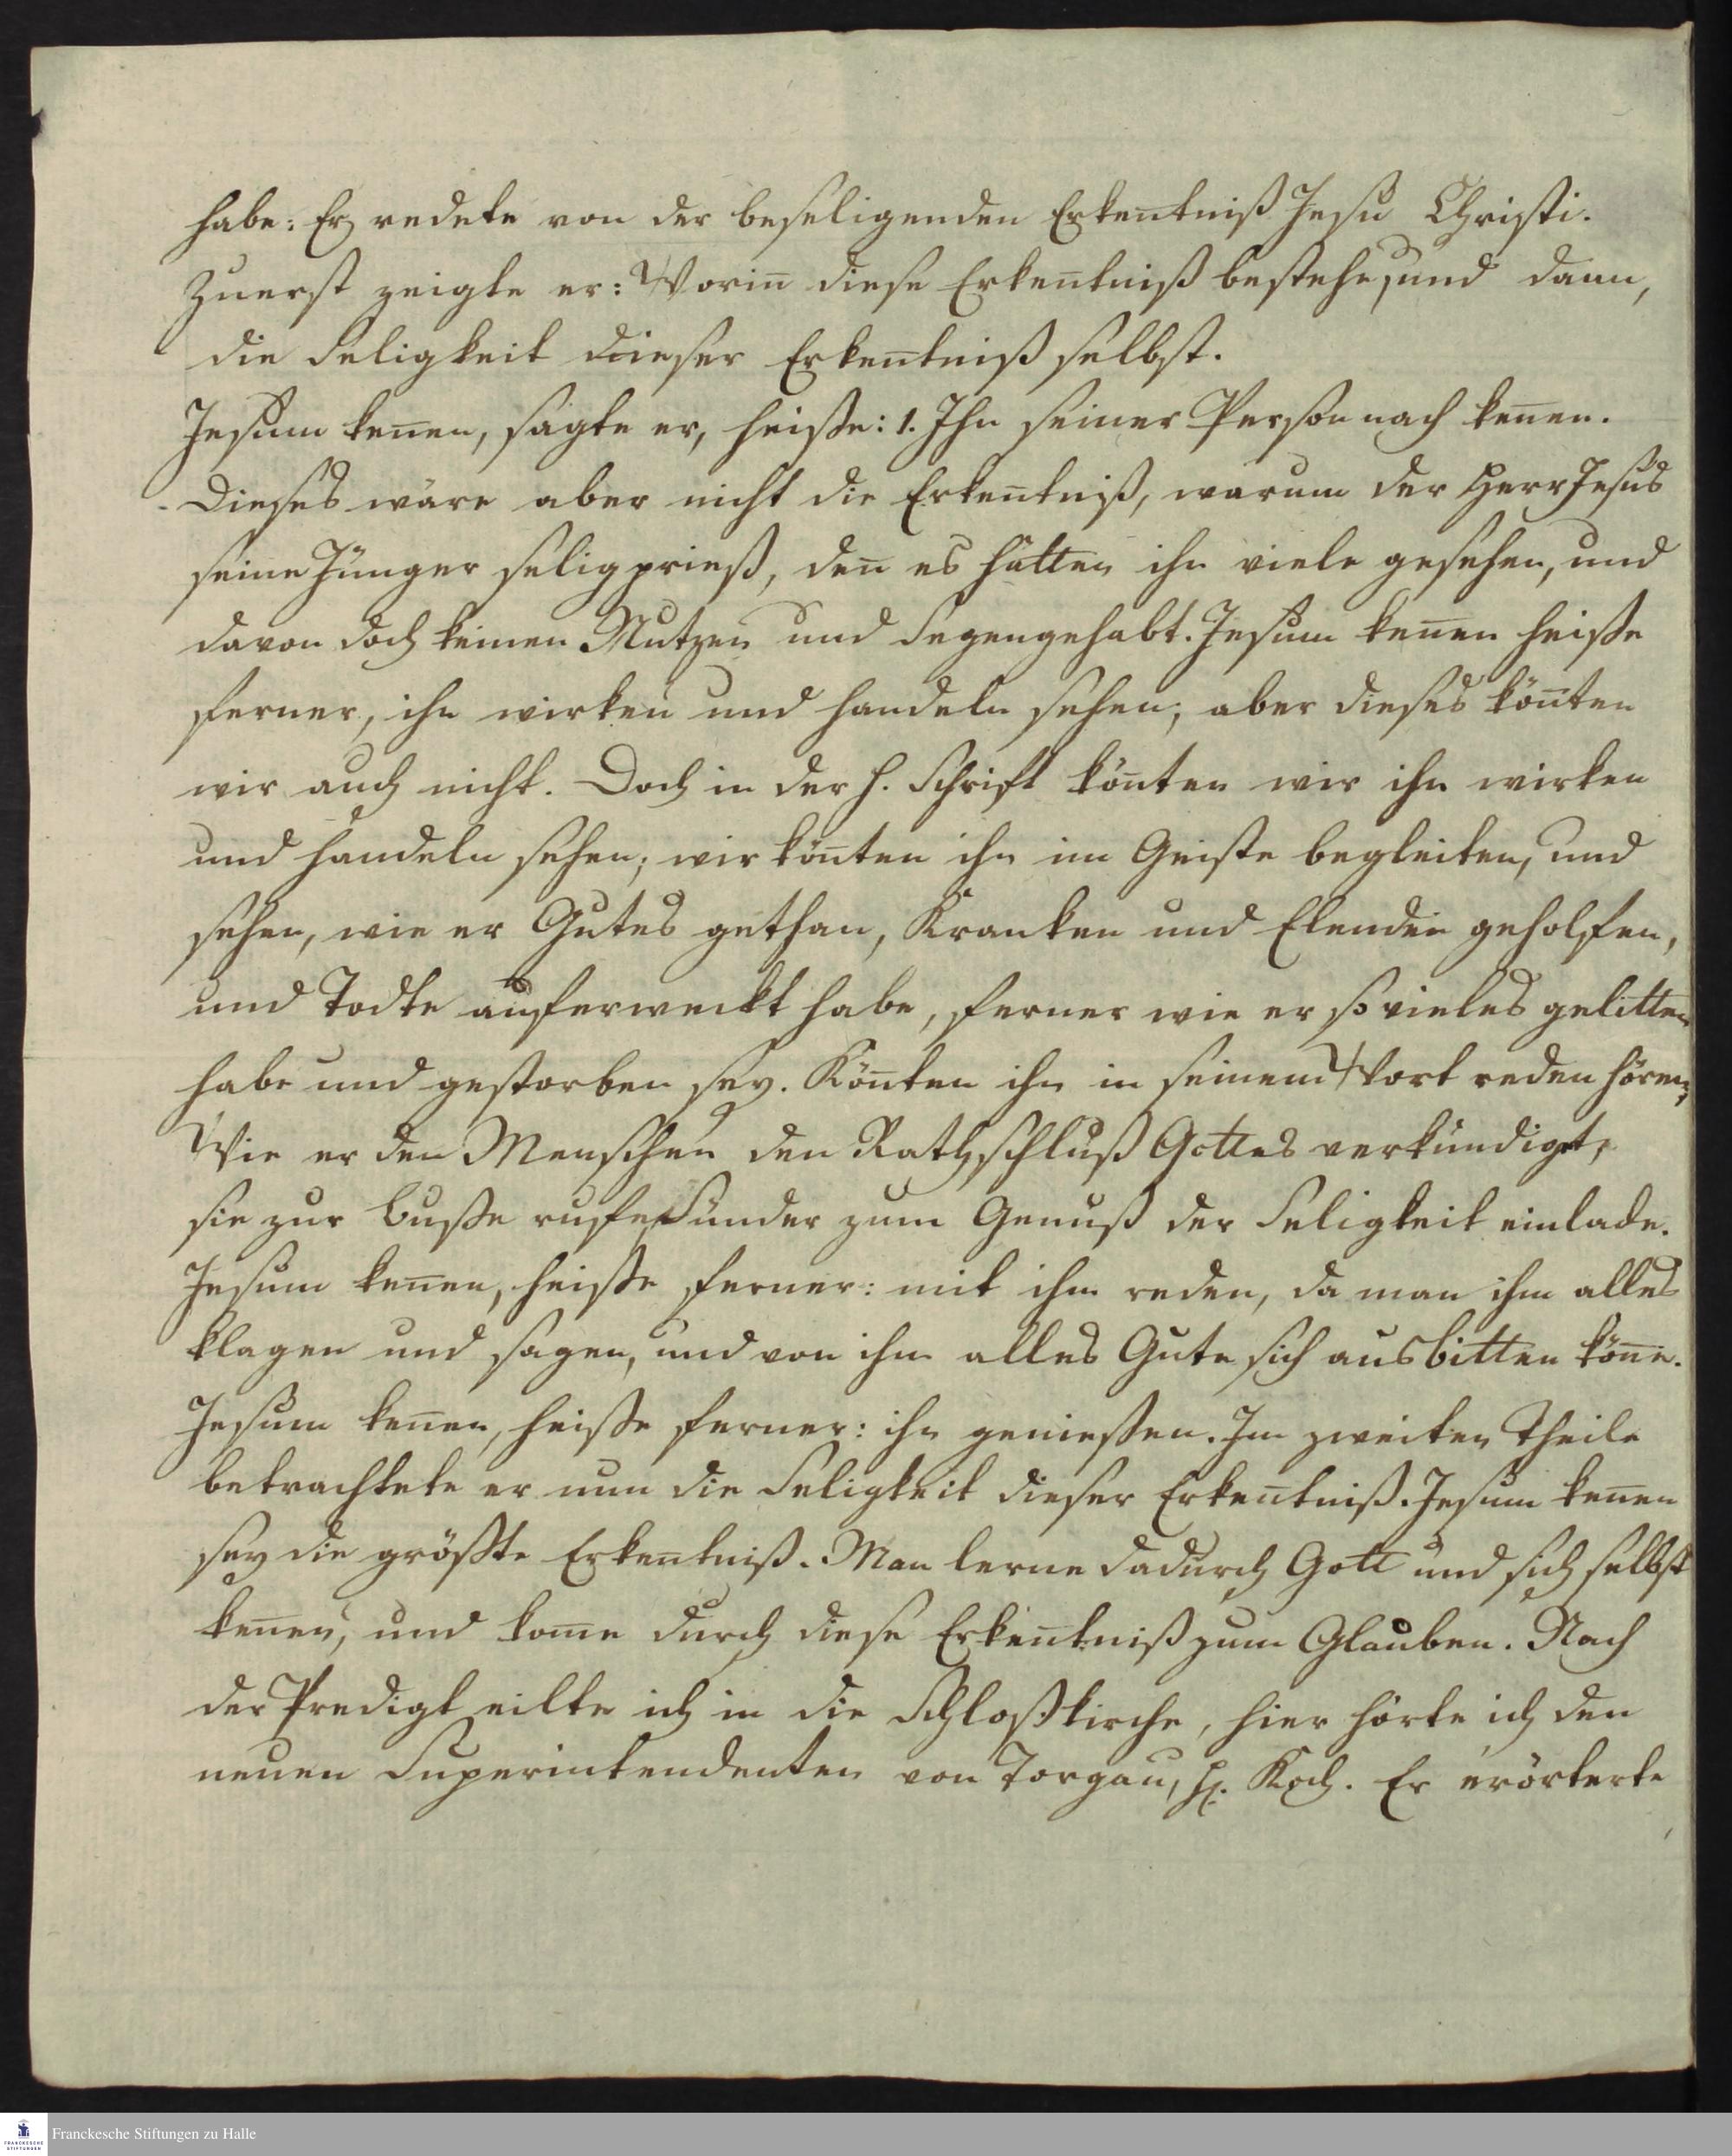 habe: Er redete von der beseligenden Erkentniß Jesu Christi.
Zuerst zeigte er: Worin̄ diese Erken̄tniß bestehe, und dann,
die Seligkeit dieser Erken̄tniß selbst.
Jesum ken̄en, sagte er, heiße: 1. Ihn seiner Person nach ken̄en.
Dieses wäre aber nicht die Erken̄tniß, warum der Herr Jesus
seine Jünger selig prieß, den̄ es hätten ihn viele gesehen, und
davon doch keinen Nutzen und Segen gehabt. Jesum ken̄en heiße
ferner, ihn wirken und handeln sehen; aber dieses kön̄ten
wir auch nicht. Doch in der h. Schrift kön̄ten wir ihn wirken
und handeln sehen; wir kön̄ten ihn im Geiste begleiten, und
sehen, wie er Gutes gethan, Kranken und Elenden geholfen,
und Todte auferweckt habe, ferner wie er so vieles gelitten
habe und gestorben sey. Kön̄ten ihn in seinem Wort reden hören,
Wie er den Menschen den Rathschluß Gottes verkündiget,
sie zur Buße rufe, Sünder zum Genuß der Seligkeit einlade.
Jesum ken̄en, heiße ferner: mit ihm reden, da man ihm alles
klagen und sagen, und von ihm alles Gute sich ausbitten kön̄e.
Jesum ken̄en, heiße ferner: ihn genießen. Im zweiten Theile
betrachtete er nun die Seligkeit dieser Erken̄tniß. Jesum ken̄en
sey die größte Erken̄tniß. Man lerne dadurch Gott und sich selbst
ken̄en, und kom̄e durch diese Erken̄tniß zum Glauben. Nach
der Predigt eilte ich in die Schloßkirche, hier hörte ich den
neuen Superintendenten von Torgau, H. Koch. Er erörterte
Franckesche Stiftungen zu Halle
FRANCKESCHE
STIFTUNGEN